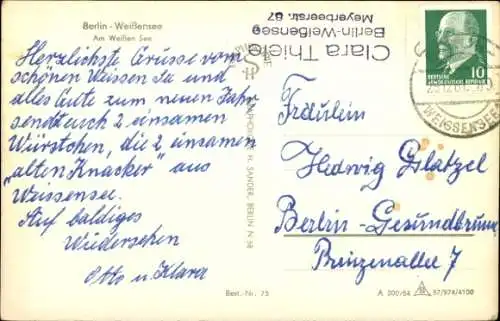 Berlin - Weißensee
Am Weißen See
Herzlichste Grüsse vom
schönen Weissen See und
alles Gute zum neuen Jahr
sendet euch 2 einsamen
Würstchen, die 2 einsamen
"alten Knacker" aus
Weissensee.
Auf baldiges
Wiedersehen
Otto u. Klara
Clara Thiele
Berlin-Weißensee
Meyerbeerstr. 87
H. SANDER, BERLIN N 58
DEUTSCHE
DEMOKRATISCHE REPUBLIK
10
WEISSENSEE
Fräulein
Hedwig Glatzel
Berlin-Gesundbrunn
Prinzenallee 7
Best.-Nr. 75
A 300/64
57/974/4100